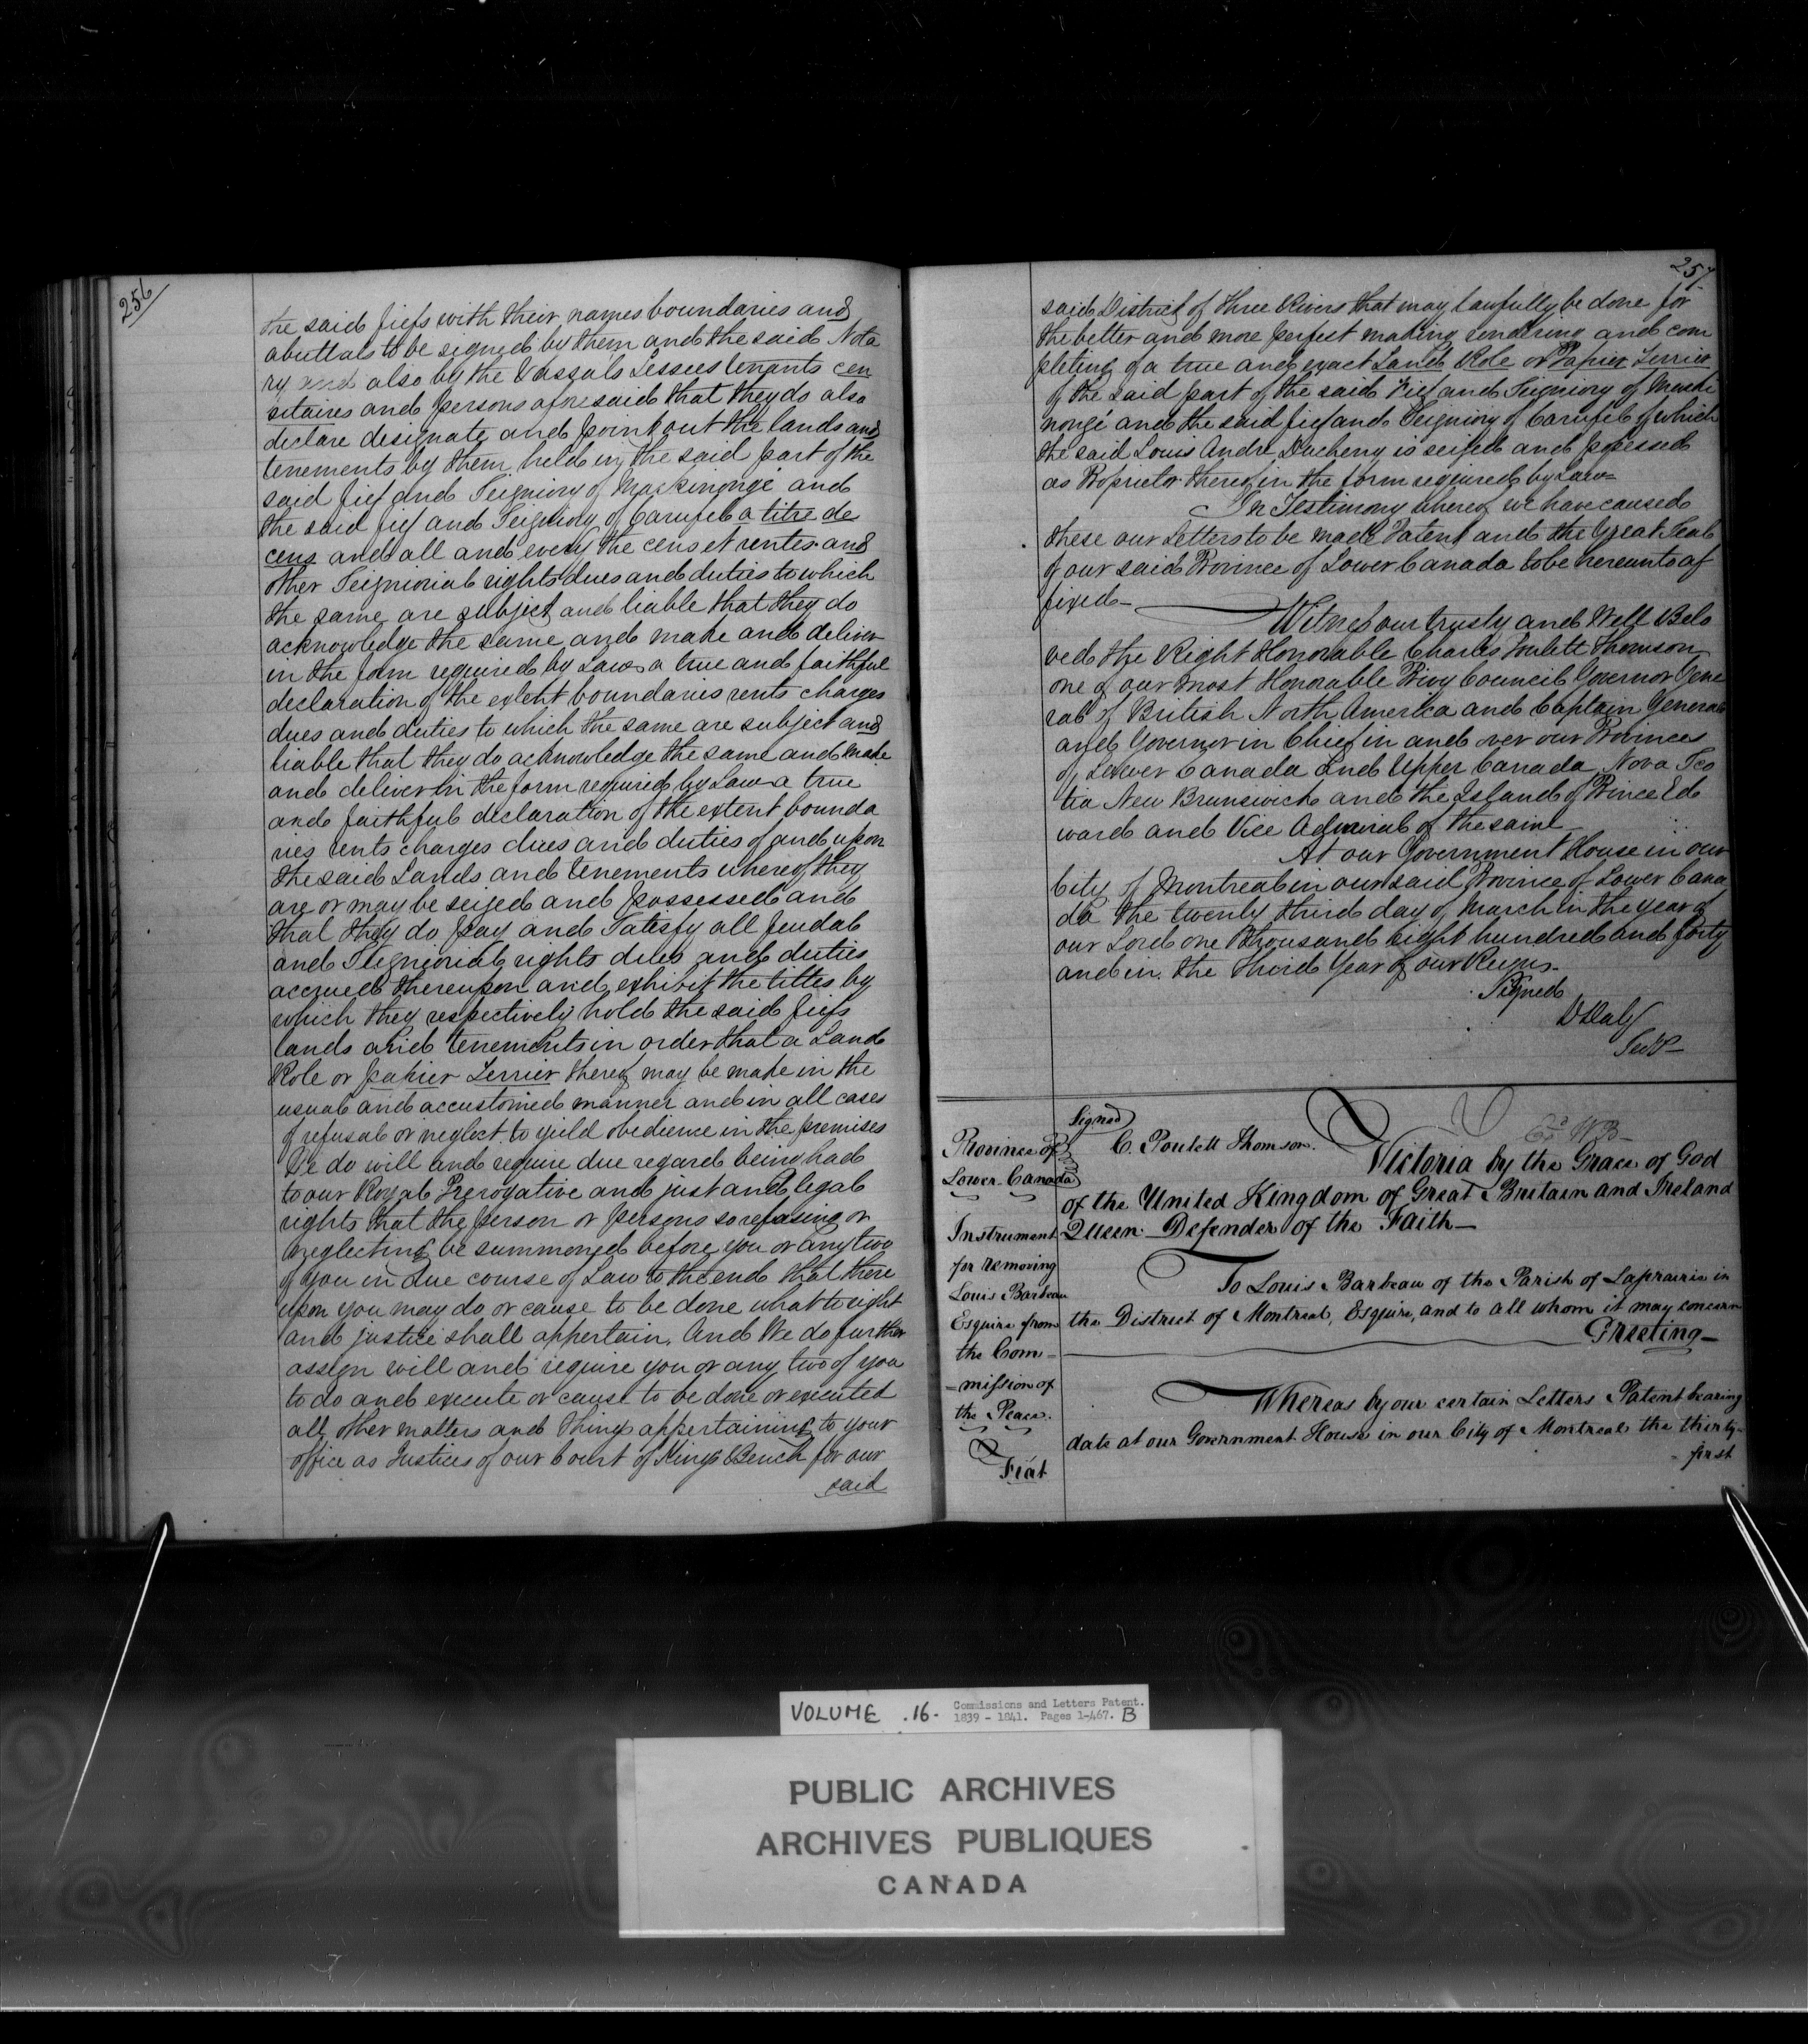 256/
the said fiefs with their names boundaries and
abuttals to be signed by them and the said Nota
ry and also by the Vassals Lessees tenants cen
sitaires and persons aforesaid that they do also
declare designate and point out the lands and
tenements by them held in the said part of the
said fief and Seigniory of Maskinongé and
the said fief and Seigniory of Carufel a titre de
cens and all and every the cens et rentes and
other Seigniorial rights dues and duties to which
the same are subject and liable that they do
acknowledge the same and make and deliver
in the form required by Law a true and faithful
declaration of the extent boundaries rents charges
dues and duties to which the same are subject and
liable that they do acknowledge the same and make
and deliver in the form required by Law a true
and faithful declaration of the extent bounda
ries rents charges dues and duties of and upon
the said Lands and tenements whereof they
are or may be seized and possessed and
that they do pay and Satisfy all feudal
and Seigniorial rights dues and duties
accrued thereupon and exhibit the titles by
which they respectively hold the said fiefs
lands and tenements in order that a Land
Role or papier Terrier thereof may be made in the
usual and accustomed manner and in all cases
of refusal or neglect to yield obedience in the premises
We do will and require due regard being had
to our Royal Prerogative and just and legal
rights that the person or persons so refusing or
neglecting be summoned before you or any two
of you in due course of Law to the end that there
upon you may do or cause to be done what to right
and justice shall appertain. And We do further
assign will and require you or any two of you
to do and execute or cause to be done or executed
all other matters and things appertaining to your
office as Justices of our Court of Kings Bench for our
said
257
said District of Three Rivers that may lawfully be done for
the better and more perfect making rendering and com
pleting of a true and exact Land Role or Papier Terrier
of the said part of the said Fief and Seigniory of Maski
nongé and the said fief and Seigniory of Carufel of which
the said Louis André Ducheny is seized and possessed
as Proprietor thereof in the form required by Law
In Testimony whereof we have caused
these our Letters to be made Patent and the Great Seal
of our said Province of Lower Canada to be hereunto af
fixed
Witness our trusty and Well Belo
ved the Right Honorable Charles Poulett Thomson
one of our most Honorable Privy Council Governor Gene
ral of British North America and Captain General
and Governor in Chief in and over our Provinces
of Lower Canada and Upper Canada Nova Sco
tia New Brunswick and the Island of Prince Ed
ward and Vice Admiral of the same
At our Government House in our
City of Montreal in our said Province of Lower Cana
da the twenty third day of March in the year of
our Lord one thousand Eight hundred and forty
and in the third Year of our Reign.
Signed
D Daly
Secy
Signed
C. Poulett Thomson.
Province of
Lower Canada
Instrument
for removing
Louis Barbeau
Esquire from
the Com=
=mission of
the Peace.
Fiat
Victoria by the Grace of God
of the United Kingdom of Great Britain and Ireland
Queen Defender of the Faith
To Louis Barbeau of the Parish of Laprairie in
the District of Montreal, Esquire, and to all whom it may concern
Greeting
Whereas by our certain Letters Patent bearing
date at our Government House in our City of Montreal the thirty-
first
VOLUME .16. Commissions and Letters Patent.
1839 - 1841. Pages 1-467. B
PUBLIC ARCHIVES
ARCHIVES PUBLIQUES
CANADA